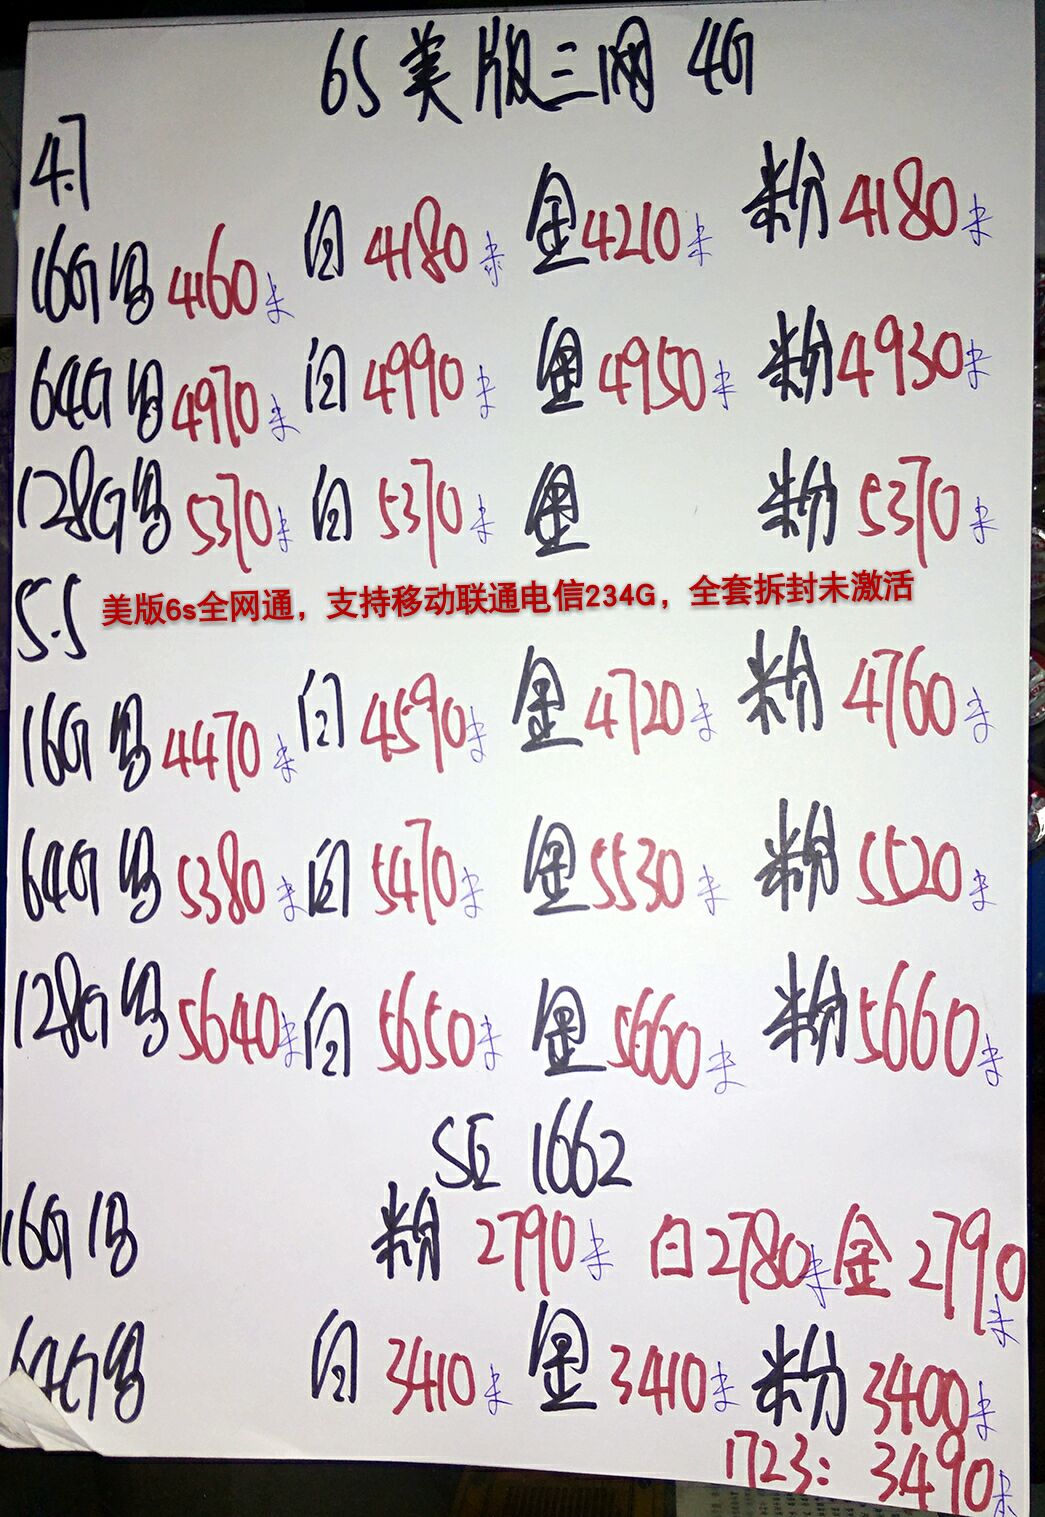 6S美版三网 4G
4.7
16G 黑 4160 未 白 4180 未 金 4210 未 粉 4180 未
64G 黑 4970 未 白 4990 未 金 4950 未 粉 4930 未
128G 黑 5370 未 白 5370 未 金 粉 5370 未
5.5 美版6s全网通，支持移动联通电信234G，全套拆封未激活
16G 黑 4470 未 白 4590 未 金 4720 未 粉 4760 未
64G 黑 5380 未 白 5470 未 金 5530 未 粉 5520 未
128G 黑 5640 未 白 5650 未 金 5660 未 粉 5660 未
SE 1662
16G 黑 粉 2790 未 白 2780 未 金 2790 未
64G 黑 白 3410 未 金 3410 未 粉 3400 未
1723: 3490 未